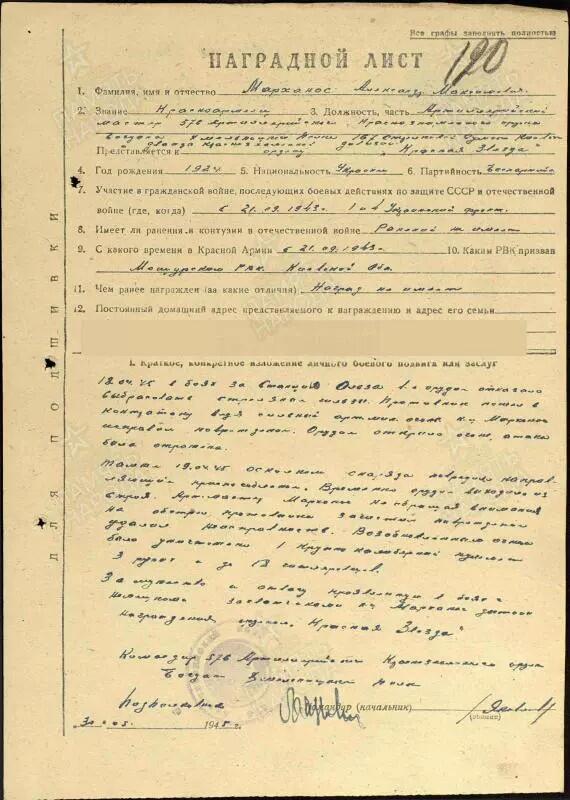 Все графы заполнять полностью
120
НАГРАДНОЙ ЛИСТ
1. Фамилия, имя и отчество Марханос Александр Максимович
2. Звание Красноармеец 3. Должность, часть Артиллерийский
мастер 576 Артиллерийского Краснознаменного ордена
Богдана Хмельницкого полка 167 Стрелковой
дважды Краснознаменной дивизии
Представляется к ордену „Красная Звезда"
4. Год рождения 1924 5. Национальность Украинец 6. Партийность Беспартийн.
7. Участие в гражданской войне, последующих боевых действиях по защите СССР и отечественной
войне (где, когда) с 21.09.1943г 1 и 4 Украинский фронт.
8. Имеет ли ранения и контузии в отечественной войне Ранений не имеет
9. С какого времени в Красной Армии с 21.09.1943г. 10. Каким РВК призван
РВК Киевской Обл.
11. Чем ранее награжден (за какие отличия) Наград не имеет
12. Постоянный домашний адрес представляемого к награждению и адрес его семьи
I. Краткое, конкретное изложение личного боевого подвига или заслуг
в боях за 1-е орудие отказало
выбрасывать стреляные гильзы. Противник пошел в
контратаку ведя сильный артмин. огонь. к-ц Марханос
исправил повреждения. Орудие открыло огонь, атака
была отбита.
19.04.45 осколком снаряда повредило направ-
ляющий Временно орудие выходило из
строя. Арт. мастер Марханос не обращая внимания
на обстрел противника
удалил неисправность. Возобновленным огнем
было уничтожено 1 крупнокалиберный пулемет
3 и до 13 гитлеровцев.
За мужество и отвагу проявленную в боях с
немецкими захватчиками к-ц Марханос достоин
награждения орденом „Красная Звезда"
Командир 576 Артиллерийского Краснознаменного ордена
Богдана Хмельницкого полка
Подполковник
Командир (начальник)
(звание)
1945 г.
ДЛЯ ПОДШИВКИ